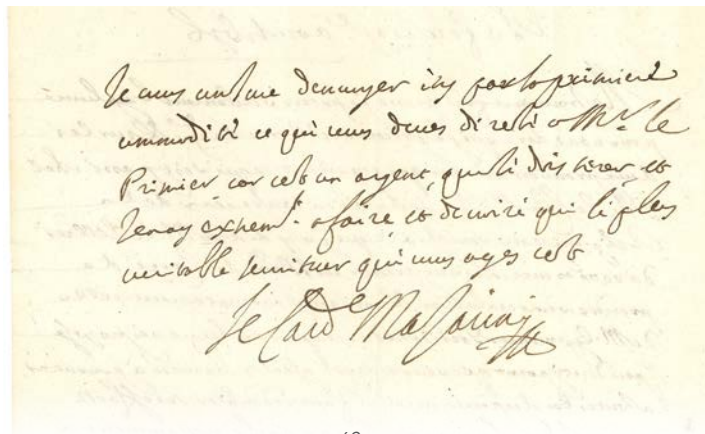 Je vous conjure d'envoyer icy par la premiere
commodité ce que vous deves de reste a Mr. le
Premier car cest un argent qu'il doit tirer et
jen ay extremt. affaire et de croire que le plus
veritable serviteur que vous ayes cest
le Card.e Mazarini